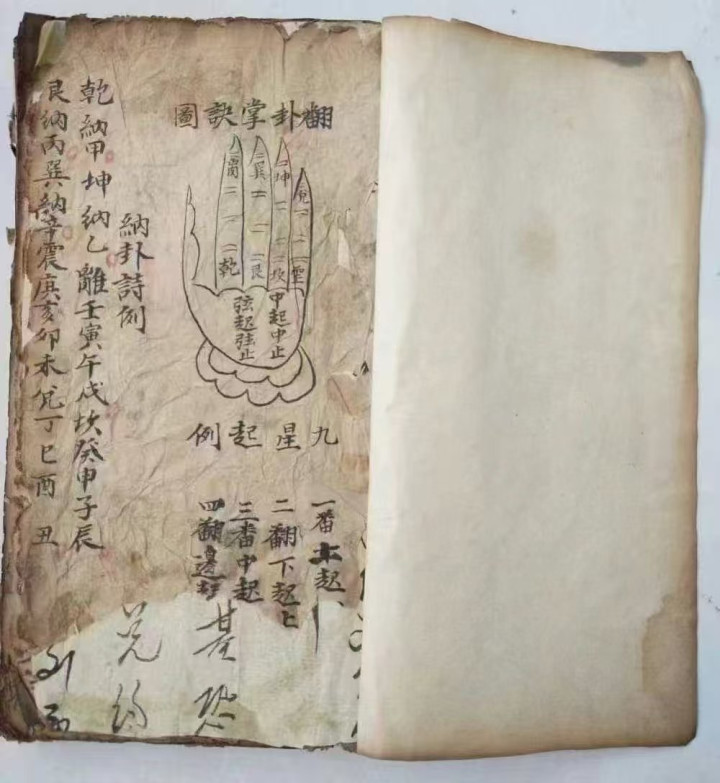 翻卦掌訣圖
離
巽
坤
兌
乾
艮
坎
震
中起中止
弦起弦止
九星起例
一番上起
二翻下起
三番中起
四翻邊起
納卦詩例
乾納甲坤納乙離壬寅午戌坎癸申子辰
艮納丙巽納辛震庚亥卯未兌丁巳酉丑
基恐